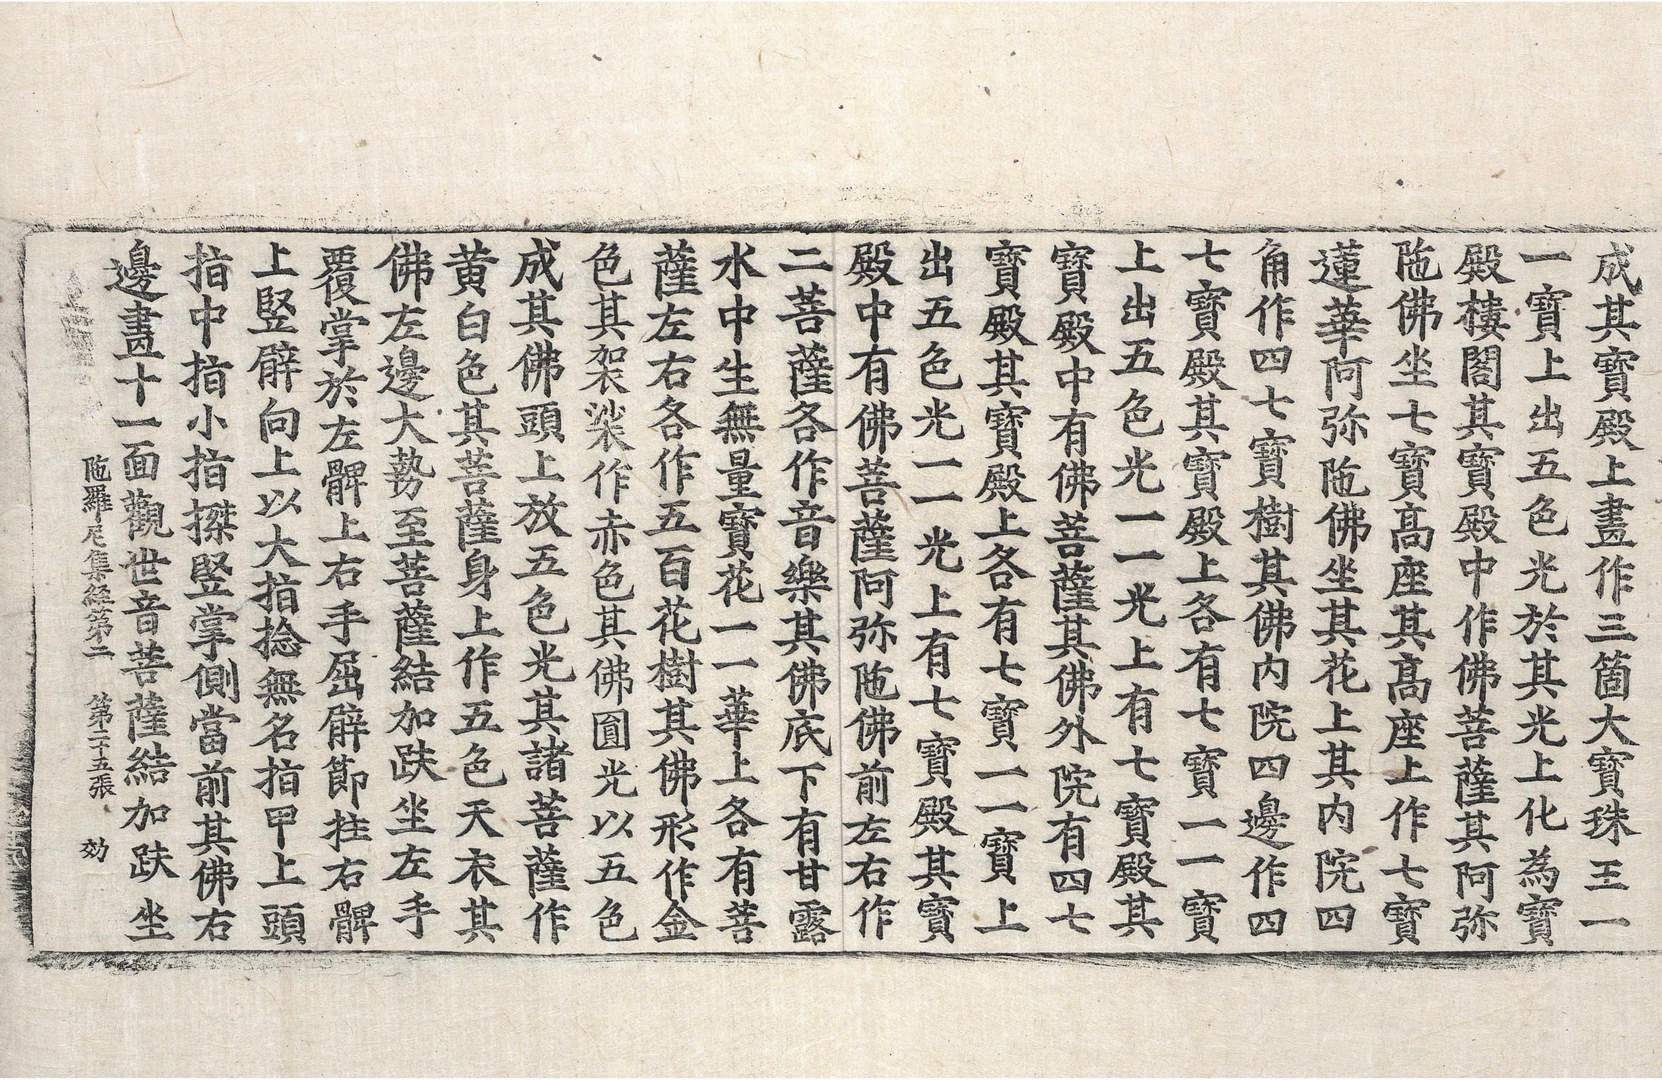 成其寶殿上畫作三箇大寶珠王一
一寶上出五色光於其光上化為寶
殿樓閣其寶殿中作佛菩薩其阿弥
陁佛坐七寶髙座其髙座上作七寶
蓮華阿弥陁佛坐其花上其内院四
角作四七寶樹其佛内院四邊作四
七寶殿其寶殿上各有七寶一一寶
上出五色光一一光上有七寶殿其
寶殿中有佛菩薩其佛外院有四七
寶殿其寶殿上各有七寶一一寶上
出五色光一一光上有七寶殿其寶
殿中有佛菩薩阿弥陁佛前左右作
二菩薩各作音樂其佛底下有甘露
水中生無量寶花一一華上各有菩
薩左右各作五百花樹其佛形作金
色其袈裟作赤色其佛圓光以五色
成其佛頭上放五色光其諸菩薩作
黄白色其菩薩身上作五色天衣其
佛左邊大勢至菩薩結加趺坐左手
覆掌於左髀上右手屈臂節拄右髀
上竪臂向上以大指捻無名指甲上頭
指中指小指搩竪掌側當前其佛右
邊畫十一面觀世音菩薩結加趺坐
陁羅尼集経第二 第二十五張 効